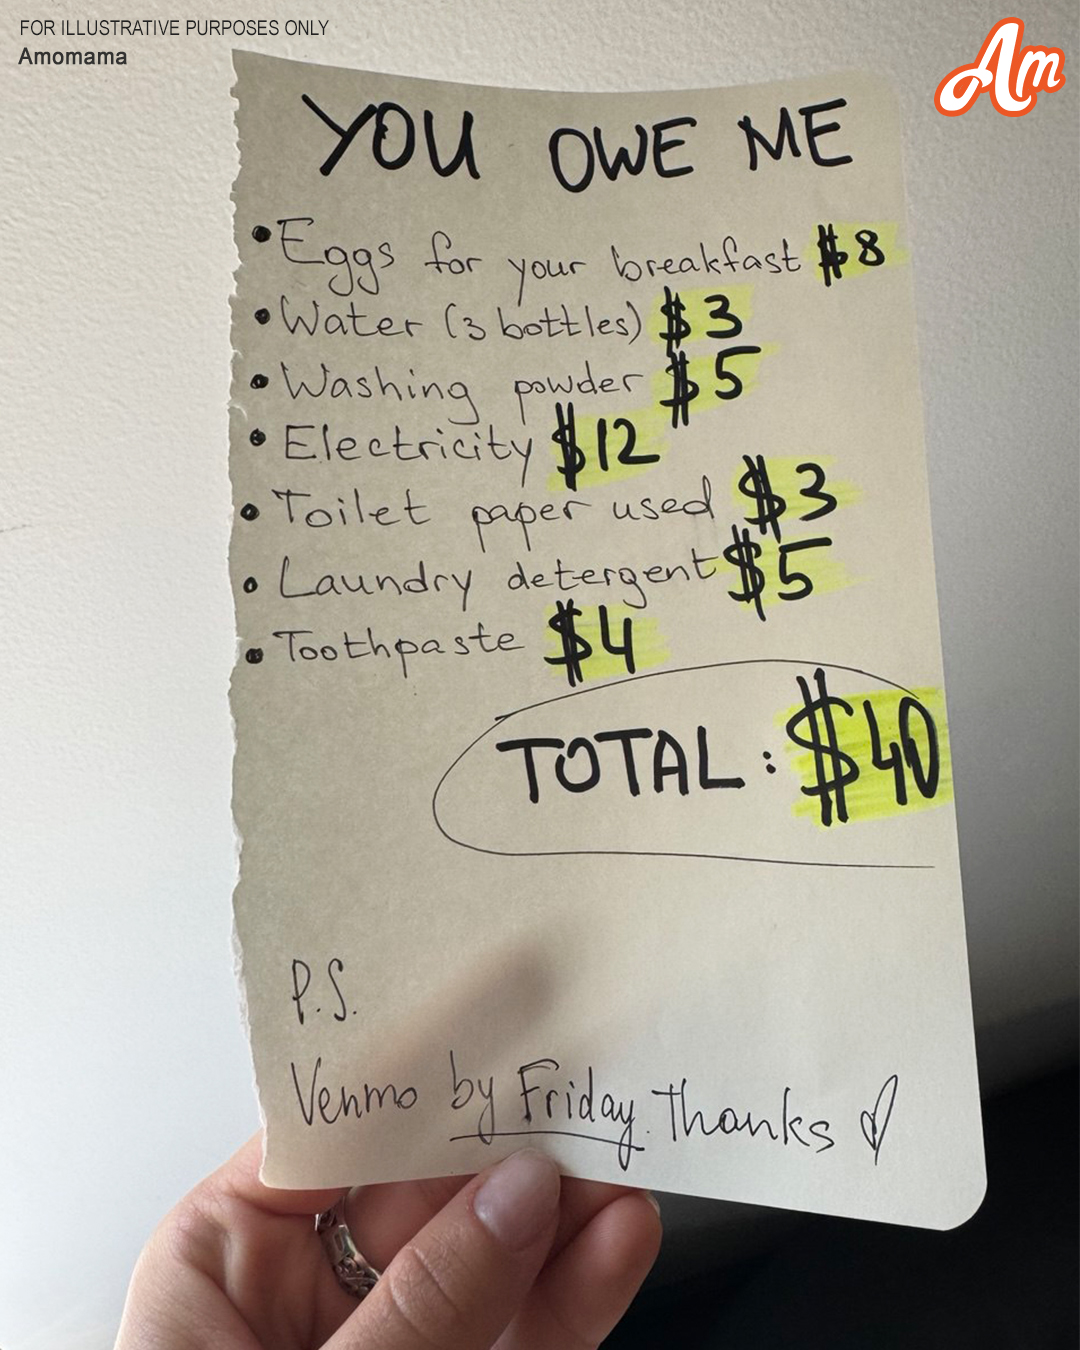 FOR ILLUSTRATIVE PURPOSES ONLY
Amomama
Am
YOU OWE ME
• Eggs for your breakfast $8
• Water (3 bottles) $3
• Washing powder $5
• Electricity $12
• Toilet paper used $3
• Laundry detergent $5
• Toothpaste $4
TOTAL: $40
P.S.
Venmo by Friday. Thanks ♡